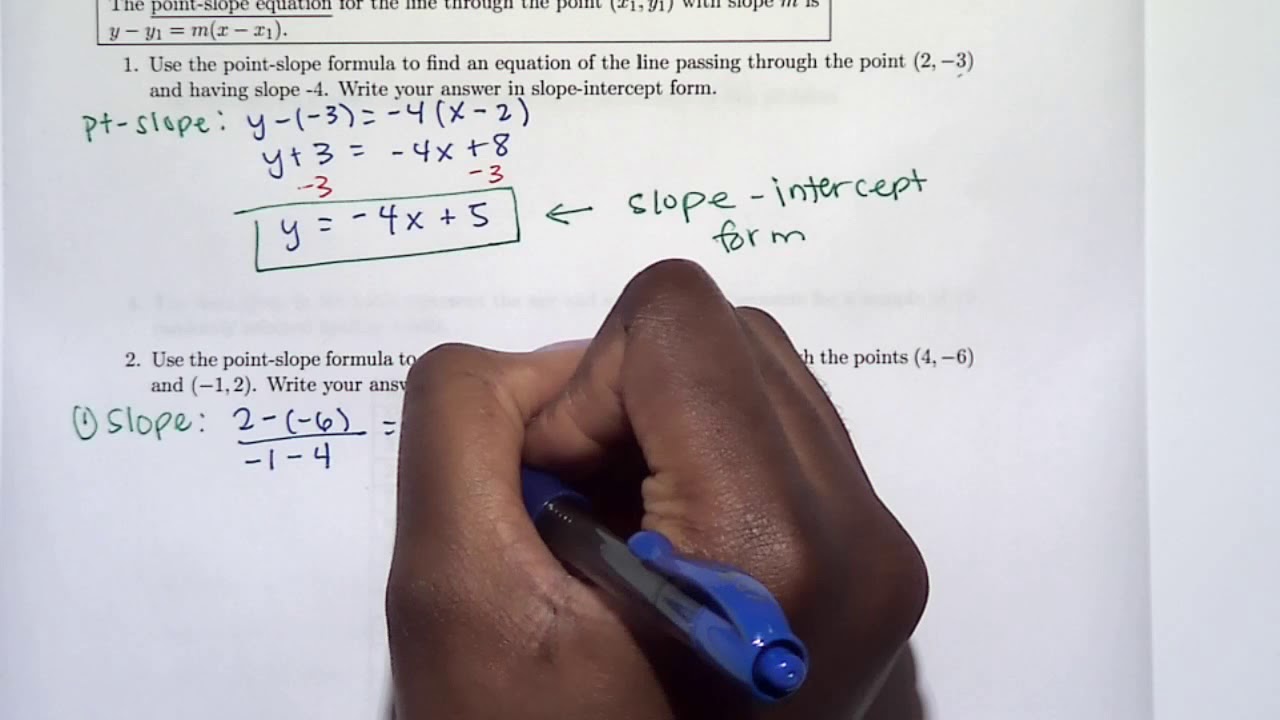 The point-slope equation for the line through the point (x₁, y₁) with slope m is
y − y₁ = m(x − x₁).
1. Use the point-slope formula to find an equation of the line passing through the point (2, −3)
and having slope -4. Write your answer in slope-intercept form.
pt-slope: y-(-3) = -4(x-2)
y+3 = -4x+8
-3 -3
y = -4x+5 ← slope-intercept
form
2. Use the point-slope formula to the points (4, −6)
and (−1, 2). Write your
① Slope: 2-(-6) =
-1-4